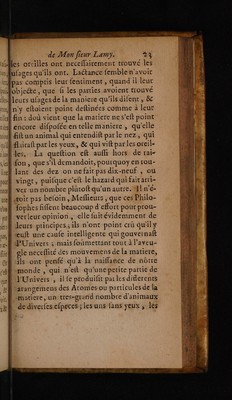 de Mon sieur Lamy. 23
les oreilles ont necessairement trouvé les
usages qu'ils ont. Lactance semble n'avoir
pas compris leur sentiment, quand il leur
objecte, que si les parties avoient trouvé
leurs usages de la maniere qu'ils disent, &
n'y estoient point destinées comme à leur
fin: doù vient que la matiere ne s'est point
encore disposée en telle maniere, qu'elle
fist un animal qui entendist par le nez, qui
flairast par les yeux, & qui vist par les oreil-
les. La question est aussi hors de rai-
son, que s'il demandoit, pourquoy en rou-
lant des dez on ne fait pas dix-neuf, ou
vingt, puisque c'est le hazard qui fait arri-
ver un nombre plûtost qu'un autre. Il n'é-
toit pas besoin, Messieurs, que ces Philo-
sophes fissent beaucoup d'effort pour prou-
ver leur opinion, elle suit évidemment de
leurs principes, ils n'ont point crû qu'il y
eust une cause intelligente qui gouvernast
l'Univers; mait soumettant tout à l'aveu-
gle necessité des mouvemens de la matiere,
ils ont pensé qu'à la naissance de nôtre
monde, qui n'est qu'une petite partie de
l'Univers, il se produisit par les differents
arangemens des Atomes ou particules de la
matiere, un tres-grand nombre d'animaux
de diverses especes; les uns sans yeux, les